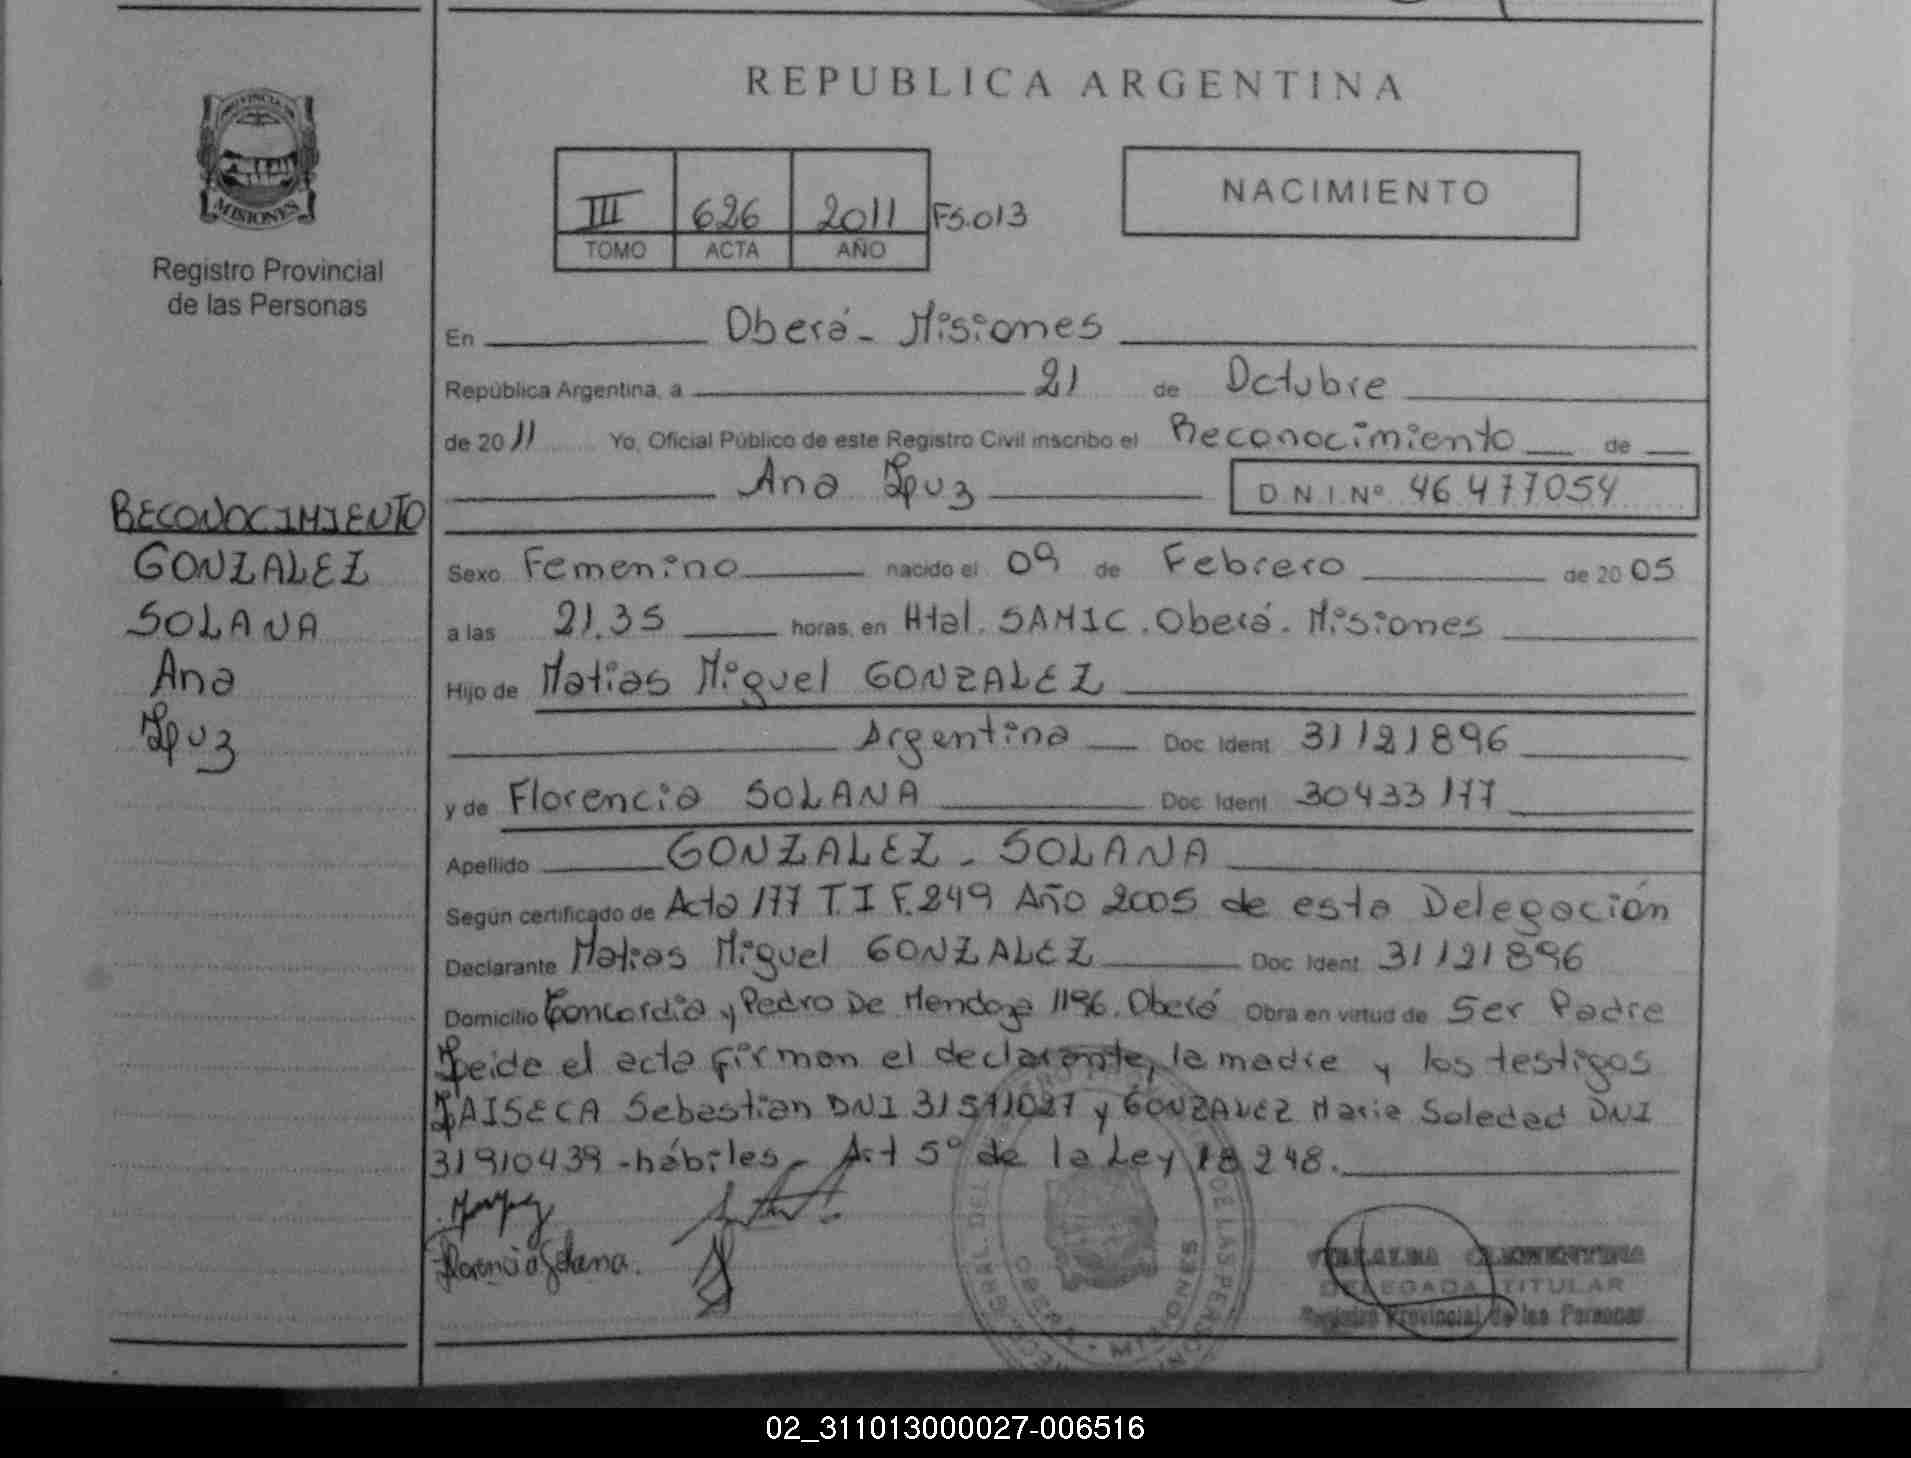 REPUBLICA ARGENTINA
PROVINCIA DE
MISIONES
Registro Provincial
de las Personas
III 626 2011 FS.013
TOMO ACTA AÑO
NACIMIENTO
En Oberá - Misiones
República Argentina, a 21 de Octubre
de 2011 Yo, Oficial Público de este Registro Civil inscribo el Reconocimiento de
Ana Luz D N I Nº 46 477054
RECONOCIMIENTO
GONZALEZ
SOLANA
Ana
Luz
Sexo Femenino nacido el 09 de Febrero de 2005
a las 21.35 horas, en Htal. SAMIC. Oberá. Misiones
Hijo de Matias Miguel GONZALEZ
Argentina Doc. Ident. 31121896
y de Florencia SOLANA Doc. Ident. 30433177
Apellido GONZALEZ - SOLANA
Según certificado de Acta 177 T.I F.249 Año 2005 de esta Delegación
Declarante Matias Miguel GONZALEZ Doc. Ident. 31121896
Domicilio Concordia y Pedro De Mendoza 1196. Oberá Obra en virtud de Ser Padre
Leida el acta firman el declarante, la madre y los testigos
LAISECA Sebastian DNI y GONZALEZ Maria Soledad DNI
31910439 - hábiles - Art 5º de la Ley 18248.
Florencia Solana.
CLEMENTINA
DELEGADA TITULAR
Registro Provincial de las Personas
MISIONES
02_311013000027-006516